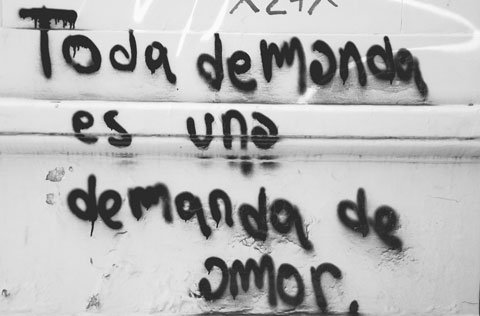 Toda demanda
es una
demanda de
amor.